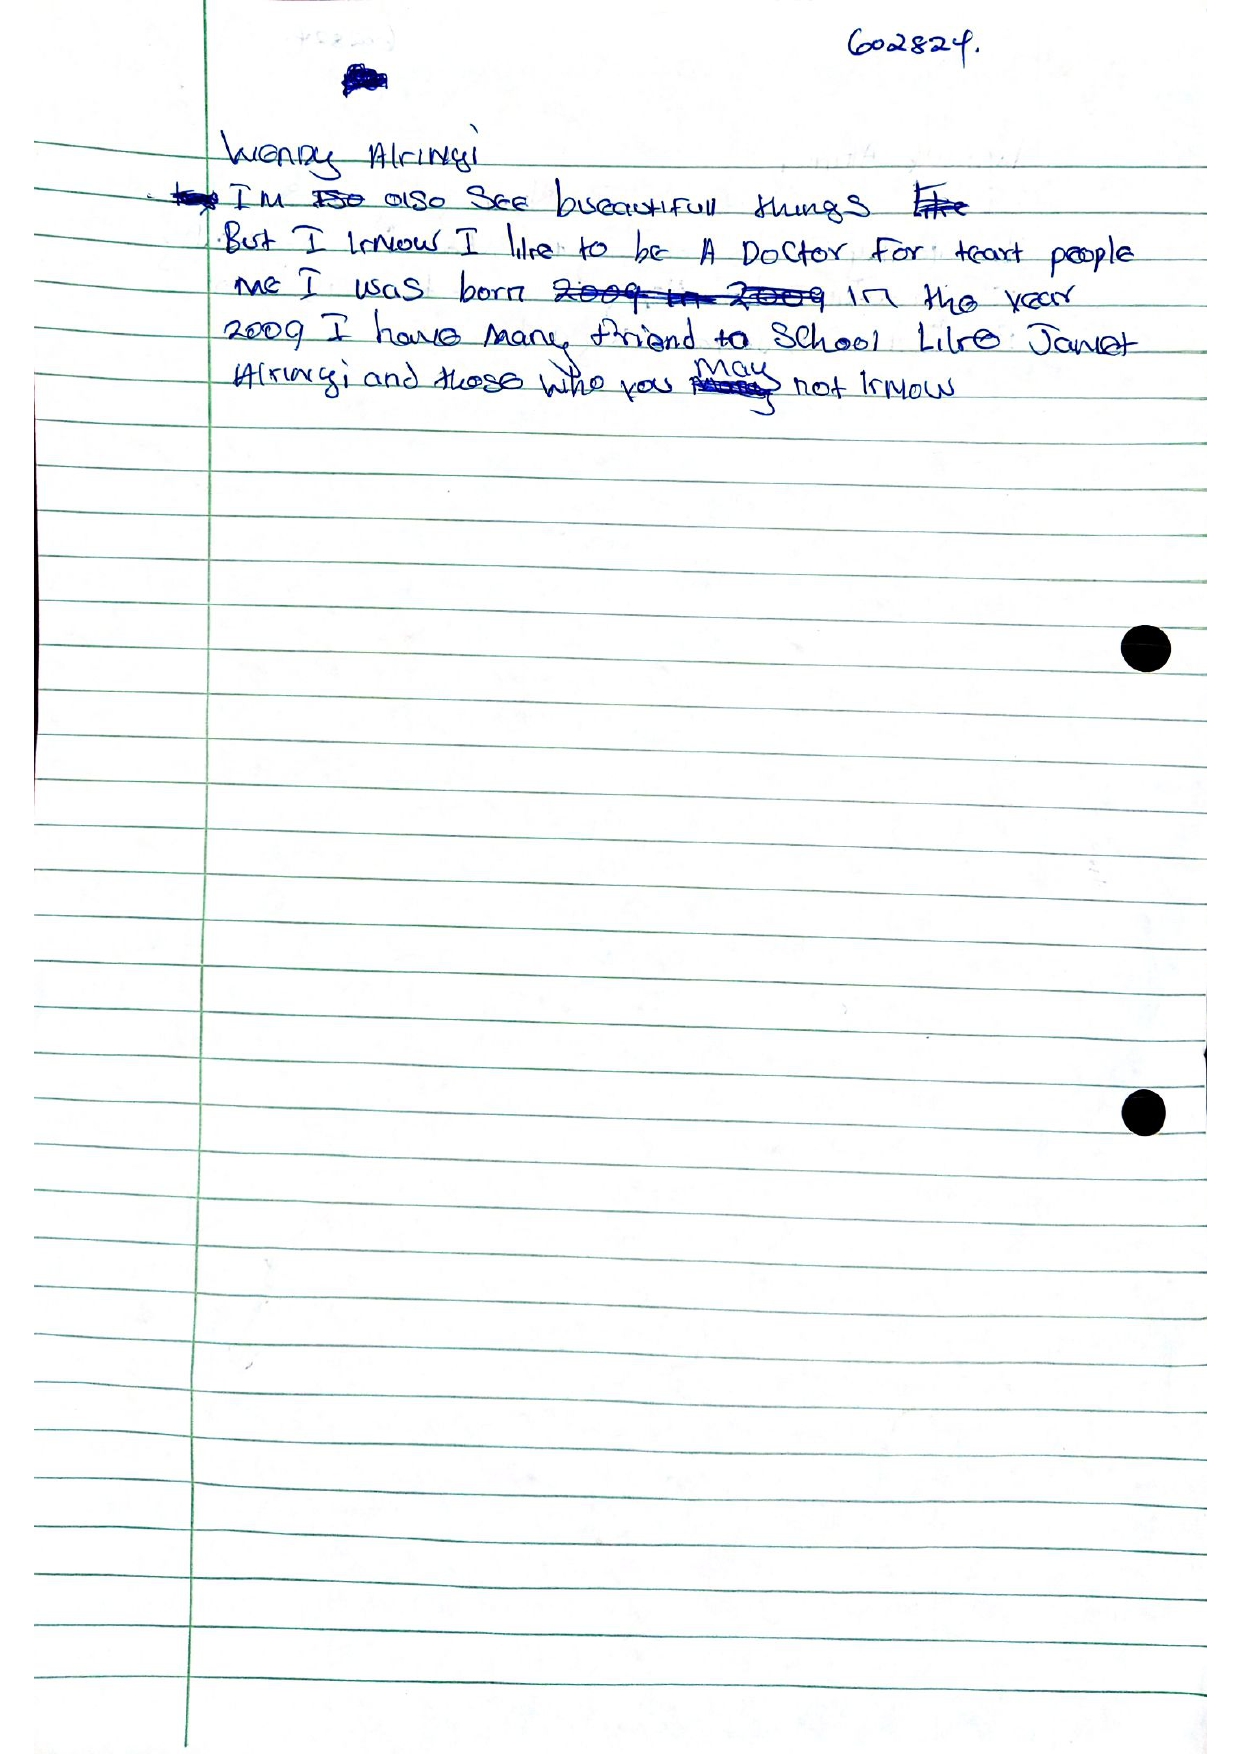 602824.
Wendy Akingi
I'm also see buseautifull things
But I know I like to be A Doctor for teart people
me I was born in the year
2009 I have many friend to school Like Janet
Akingi and those who you may not know